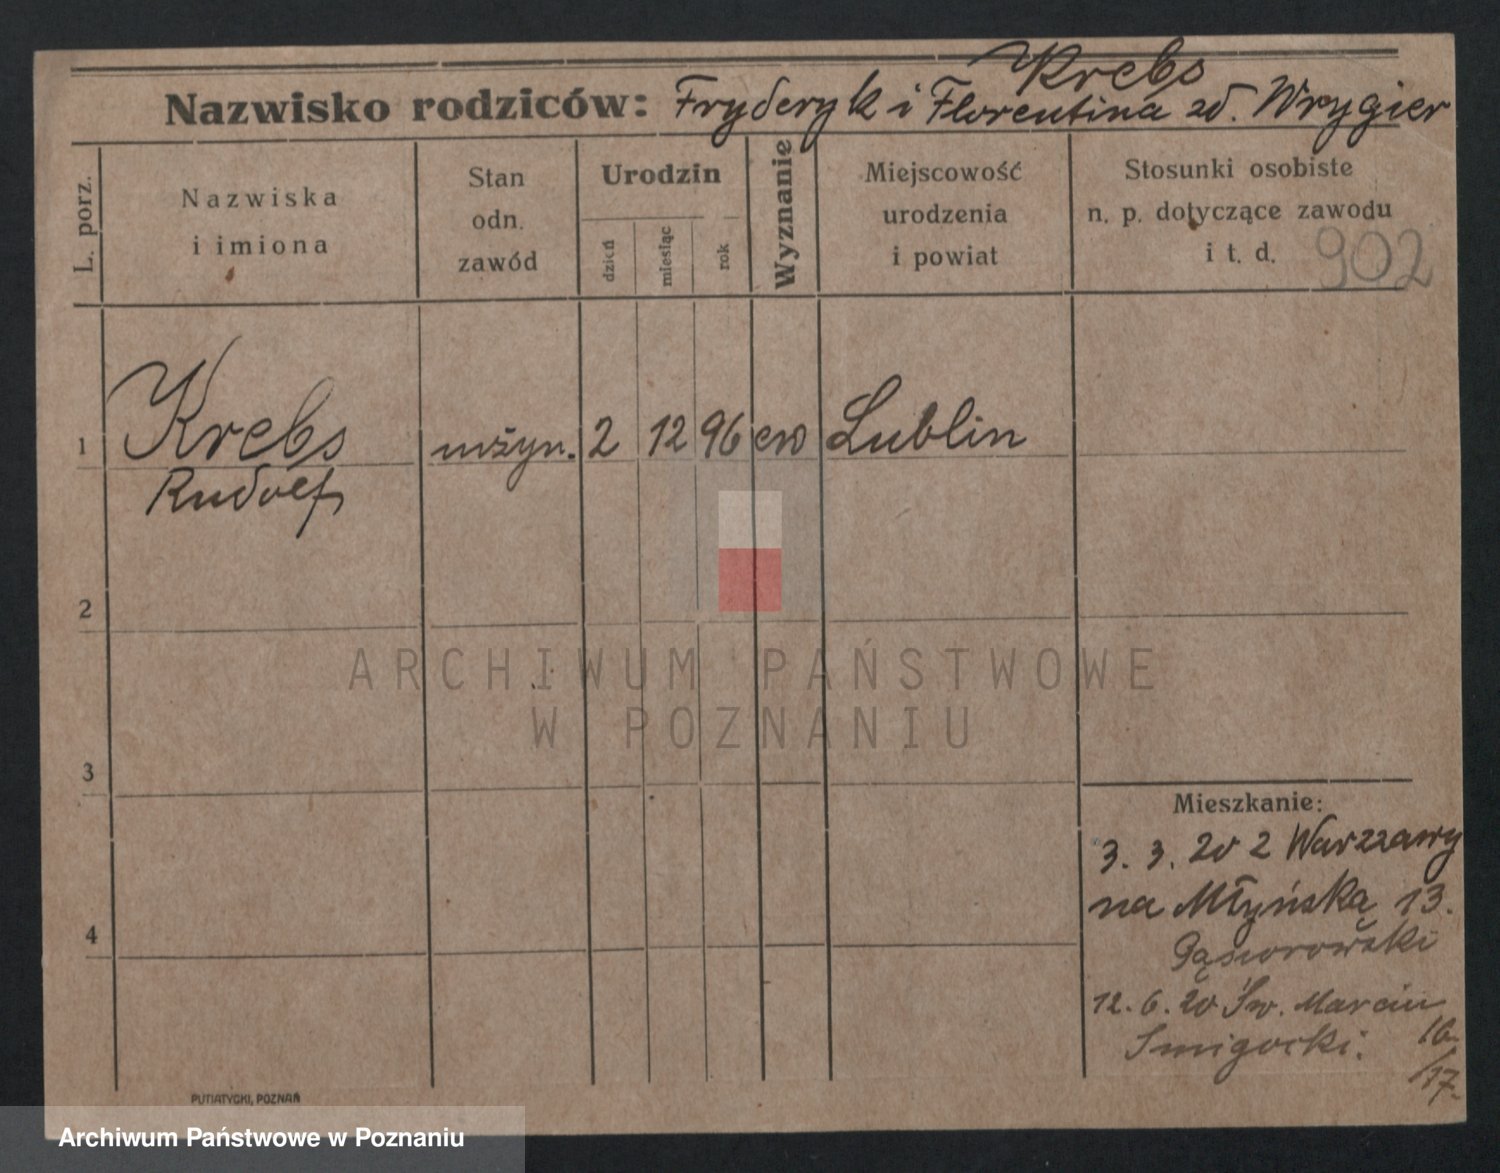 Krebs
Nazwisko rodziców: Fryderyk i Florentina zd. Wrygier
L. porz.
Nazwiska
i imiona
Stan
odn.
zawód
Urodzin
dzień
miesiąc
rok
Wyznanie
Miejscowość
urodzenia
i powiat
Stosunki osobiste
n. p. dotyczące zawodu
i t. d.
902
1 Krebs inżyn. 2 12 96 ew Lublin
Rudolf
2
3
4
Mieszkanie:
3. 3. 20 z Warszawy
na Młyńską 13.
Gąsiorowski
12. 6. 20 Św. Marcin
16/17.
Smigocki.
PUTIATYCKI, POZNAŃ
ARCHIWUM PAŃSTWOWE
W POZNANIU
Archiwum Państwowe w Poznaniu